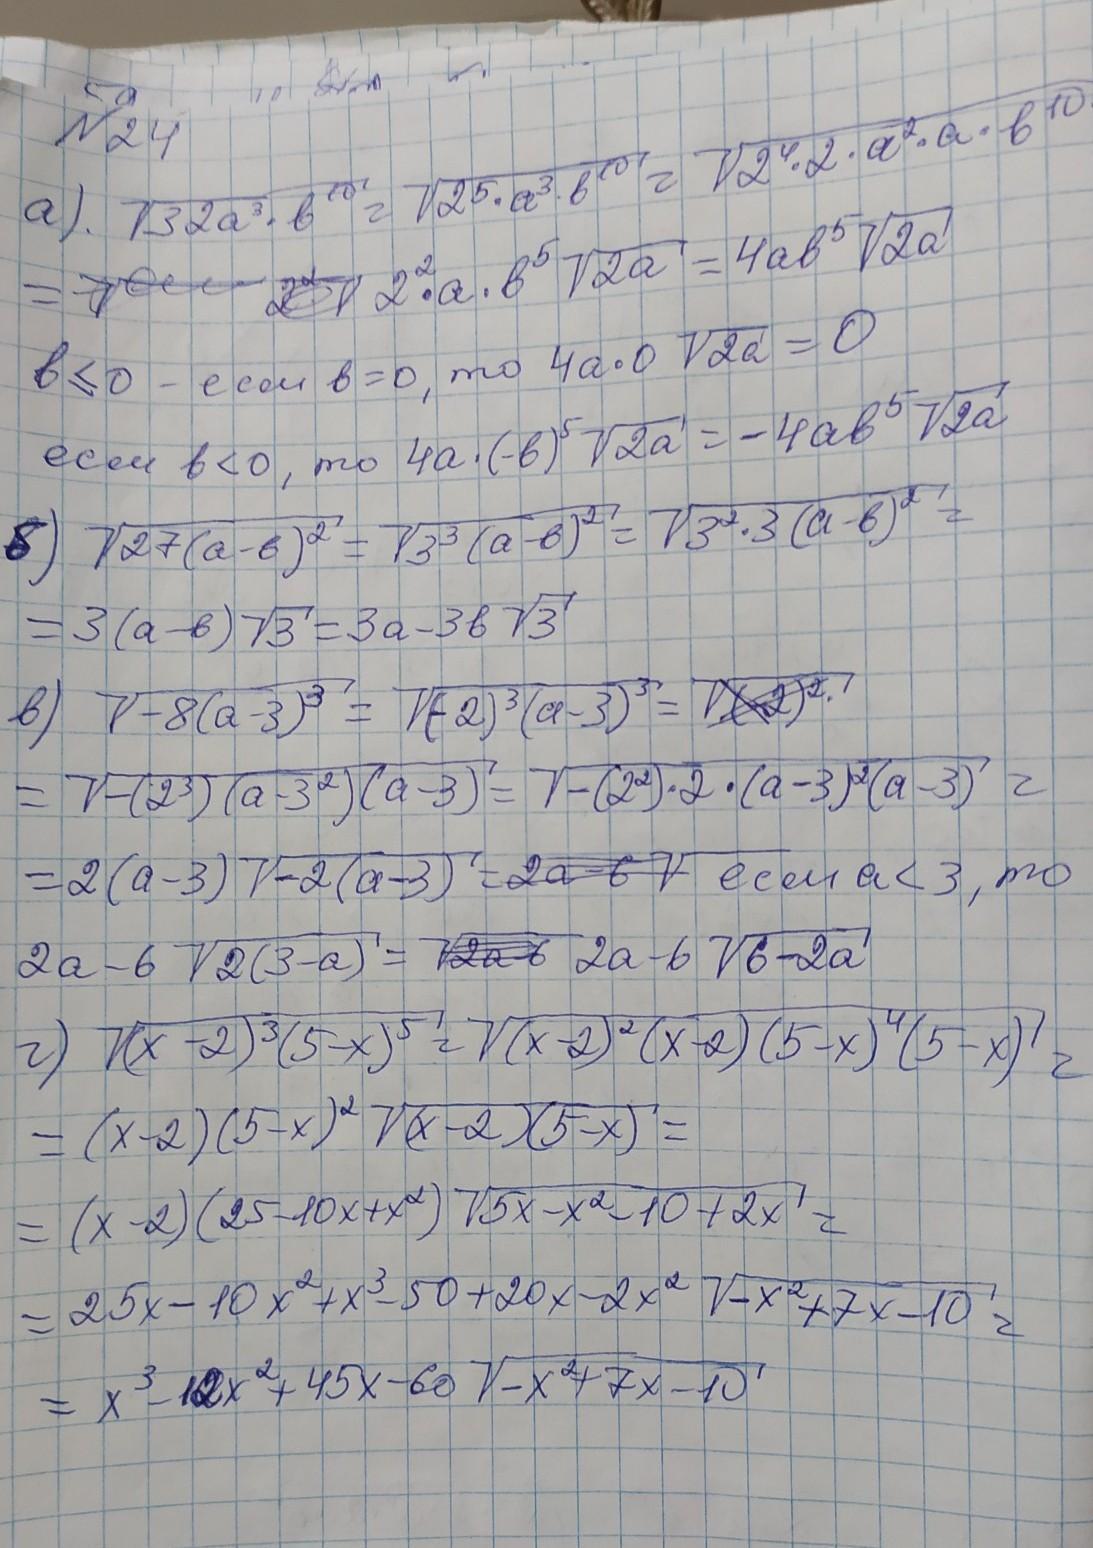 №24
а). √32a³·b¹⁰ = √2⁵·a³·b¹⁰ = √2⁴·2·a²·a·b¹⁰
= 2²·a·b⁵√2a = 4ab⁵√2a
b≤0 - если b=0, то 4a·0√2a = 0
если b<0, то 4a·(-b)⁵√2a = -4ab⁵√2a
б) √27(a-b)² = √3³(a-b)² = √3²·3(a-b)² =
= 3(a-b)√3 = 3a-3b√3
в) √-8(a-3)³ = √(-2)³(a-3)³ = √(-2)².
= √-(2³)(a-3²)(a-3) = √-(2²)·2·(a-3)²(a-3) =
= 2(a-3)√-2(a-3) = 2a-6√ если a<3, то
2a-6√2(3-a) = √2a-6 2a-6√6-2a
г) √(x-2)³(5-x)⁵ = √(x-2)²(x-2)(5-x)⁴(5-x) =
= (x-2)(5-x)²√(x-2)(5-x) =
= (x-2)(25-10x+x²)√5x-x²-10+2x =
= 25x-10x²+x³-50+20x-2x²√-x²+7x-10 =
= x³-12x²+45x-60√-x²+7x-10